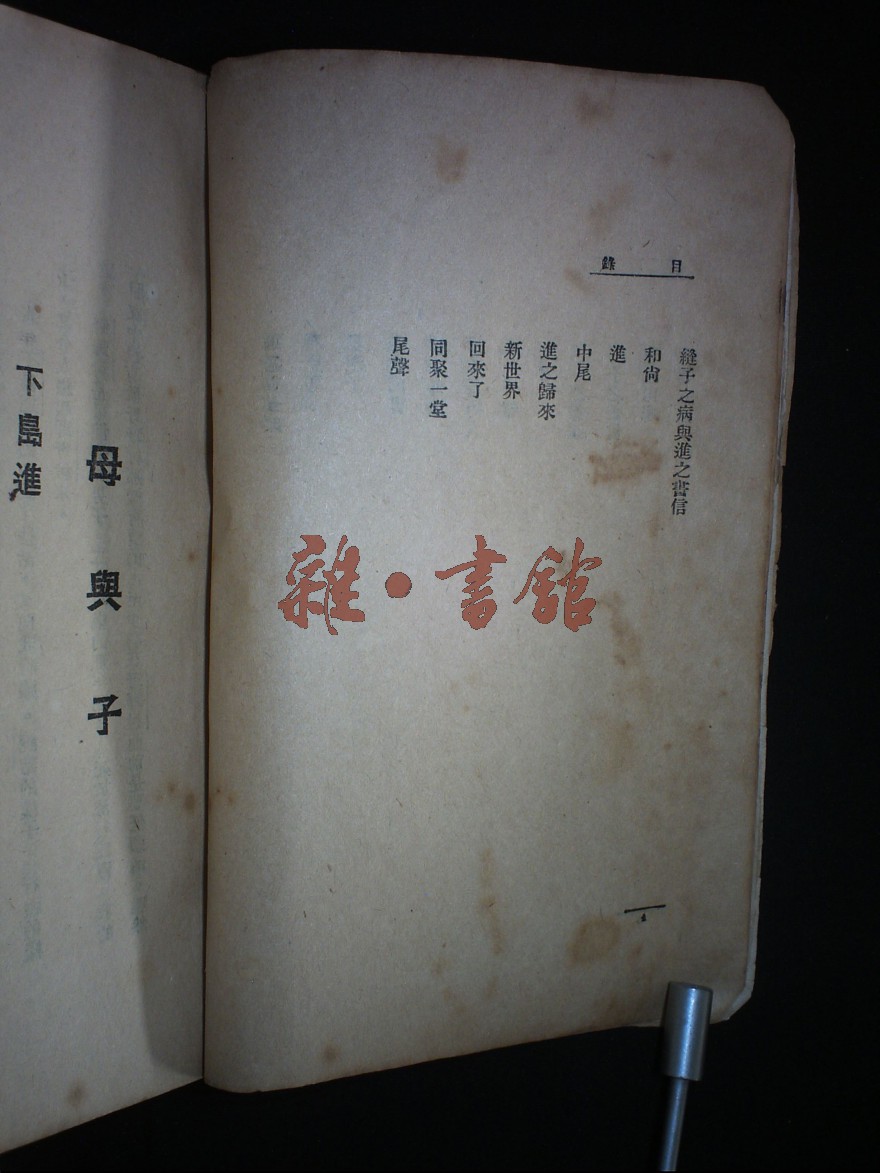 目錄
縫子之病與進之書信
和尙
進
中尾
進之歸來
新世界
回來了
同聚一堂
尾聲
母與子
下島進
雜·書館